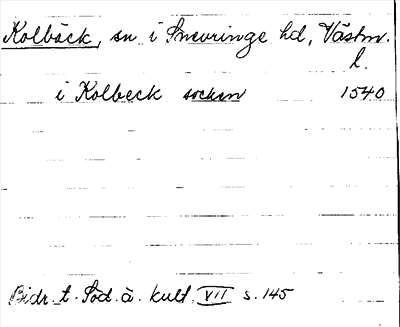 Kolbäck, sn i Snevringe hd, Västm.
l.
i Kolbeck socken 1540
Bidr. t. Söd. ä. kult. VII s. 145